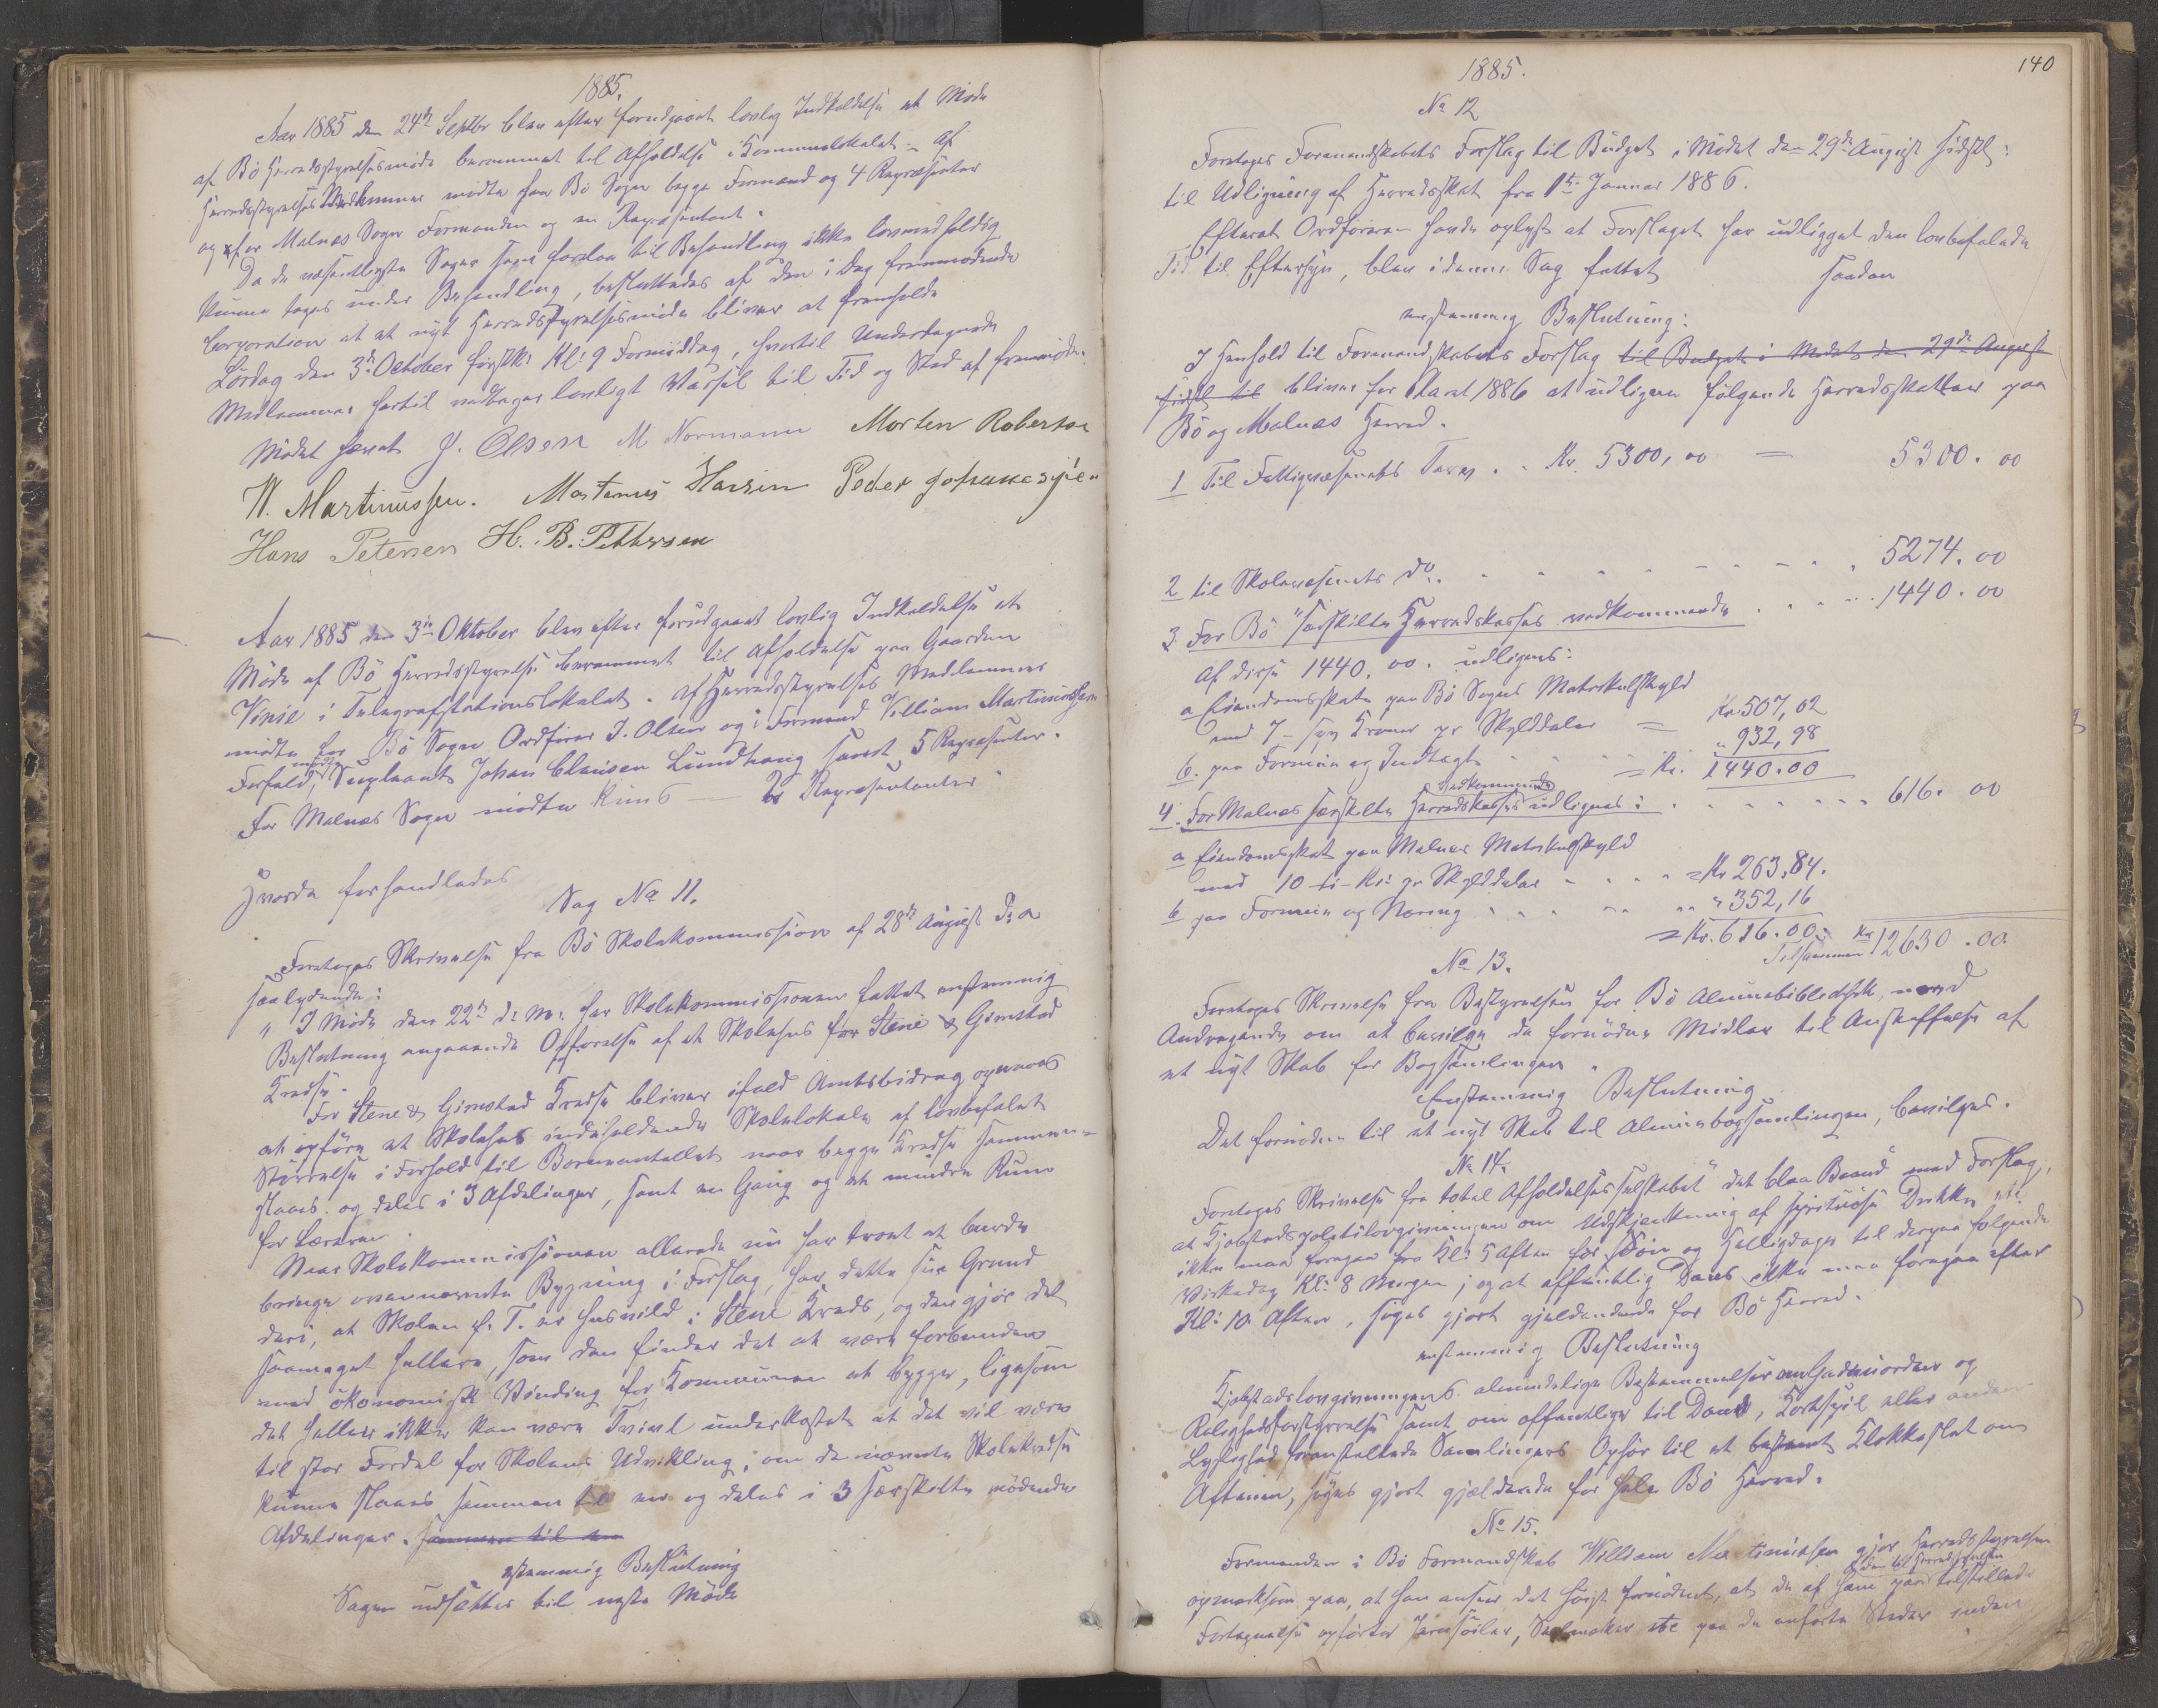 1885.
Aar 1885 den 24de Septbr blev efter forudgaaet lovlig Indkaldelse et Møde
af Bö Herredsstyrelsesmöde berammet til Afholdelse i Kommunelokalet. Af
Herredsstyrelsens Medlemmer mödte for Bö Sogn begge Formænd og 4 Repræsenter
og for Malnes Sogn Formanden og en Repræsentant.
Da de væsentligste Sager som forelaa til Behandling ikke lovmedholdig
kunne tages under Behandling, besluttedes af den i Dag fremmødende
Corporation at et nyt Herredsstyrelsesmöde bliver at fremholde
Lördag den 3de October förstk: Kl: 9 Formiddag, hvortil Undertegnede
Medlemmer hertil vedtager lovligt Varsel til Tid og Sted at fremmöde.
Mödet hævet J. Olsen M Normann Morten Robertsen
W. Martinussen. Martinus Hansen Peder Johannesen
Hans Petersen H. B. Pettersen
Aar 1885 den 3die Oktober blev efter forudgaaet lovlig Indkaldelse et
Möde af Bö Herredsstyrelse berammet til Afholdelse paa Gaarden
Vinje i Telegrafstationslokalet. Af Herredsstyrelsens Medlemmer
mödte for Bö Sogn Ordförer J. Olsen og i Formand Villiam Martinussens
Forfald, mödte Supleant Johan Clausen Lundhaug samt 5 Repræsenter.
For Malnes Sogn mödte kuns — Repræsentanter
Hvorda forhandledes
Sag No 11.
Foretoges Skrivelse fra Bö Skolekommission af 28de August D: a
saalydende:
"I Möde den 22de d: M: har Skolekommissionen fattet enstemmig
Beslutning angaaende Opförelse af et Skolehus for Steine & Gimstad
Kredse.
For Steine & Gimstad Kredse bliver ifald Amtsbidrag opnaaes
at opföre et Skolehus indeholdende Skolelokale af lovbefalet
Störrelse i Forhold til Börneantallet naar begge Kredse sammen-
slaaes og deles i 3 Afdelinger, samt en Gang og et mindre Rum
for Læreren.
Naar Skolekommissionen allerede nu har troet at burde
bringe ovennævnte Bygning i Forslag, har dette sin Grund
deri, at Skolen p. T. er husvild i Steine Kreds, og den gjör det
saameget hellere, som den finder det at være forbunden
med ökonomisk Vinding for Kommunen at bygge, ligesom
det heller ikke kan være Tvivl underkastet at det vil være
til stor Fordel for Skolens Udvikling, om de nævnte Skolekredse
kunne slaaes sammen til en og deles i 3 særskilte mödende
Afdelinger. sammen til en
enstemmig Beslutning
Sagen udsættes til næste Möde
140
1885.
No 12
Foretoges Formandskabets Forslag til Budget i Mödet den 29de August sidstl:
til Udligning af Herredsskat fra 1ste Januar 1886.
Efterat Ordföreren havde oplyst at Forslaget har udligget den lovbefalede
Tid til Eftersyn, blev i denne Sag fattet saadan
enstemmig Beslutning:
I Henhold til Formandskabets Forslag til Budget i Mödet den 29de August
sidstl til bliver for Aaret 1886 at udligne følgende Herredsskatter paa
Bö og Malnes Herred.
1 Til Fattigvæsenets Tarv . . Kr. 5300,00 = 5300.00
2 til Skolevæsenets do . . . . . . . . . 5274.00
3 For Bö særskilte Herredskasses vedkommende . . . . . 1440.00
Af disse 1440.00. udlignes:
a Eiendomsskat paa Bö Sogns Matrikulskyld
med 7 - syv Kroner pr Skylddaler = Kr: 507,02
b. paa Formue og Indtægt . . . . " 932,98
= Kr. 1440.00
4. For Malnes særskilte Herredskasses vedkommende udlignes: . . . . . . . 616.00
a Eiendomsskat paa Malnes Matrikulskyld
med 10 - ti - Kr: pr Skylddaler . . . . = Kr 263,84.
b paa Formue og Næring . . . . . " 352,16
= Kr. 616.00.
Tilsammen Kr 12630.00.
No 13.
Foretoges Skrivelse fra Bestyrelsen for Bö Almuebibliothek, med
Andragende om at bevilge de fornödne Midler til Anskaffelse af
et nyt Skab for Bogsamlingen.
Enstemmig Beslutning
Det fornödne til et nyt Skab til Almuebogsamlingen, bevilges.
No 14.
Foretoges Skrivelse fra total Afholdelsesselskabet "det blaa Baand" med Forslag,
at Kjøbstadspolitilovgivningen om Udskjænkning af spirituöse Drikke etc.
ikke maa foregaa fra Kl: 5 Aften för Sön og Helligdage til derpaa følgende
Virkedag Kl: 8 Morgen; og at offentlig Dans ikke maa foregaa efter
Kl: 10 Aften, söges gjort gjeldendende for Bö Herred.
enstemmig Beslutning
Kjøbstadslovgivningens almindelige Bestemmelser om Gadeuorden og
Rolighedsforstyrrelse samt om offentlige til Dands, Kortspil eller anden
Lystighed foranstaltede Samlingers Ophör til et bestemt Klokkeslet om
Aftenen, söges gjort gjældende for hele Bö Herred.
No 15.
Formanden i Bö Formandskab William Martinusen gjör Herredsstyrelsen
opmærksom paa, at han anser det höist fornödent, at de af ham paa den til Herredsstyrelsen tilstillede
Fortegnelse opförte Jernsöiler, Sælmærker etc paa de anførte Steder inden